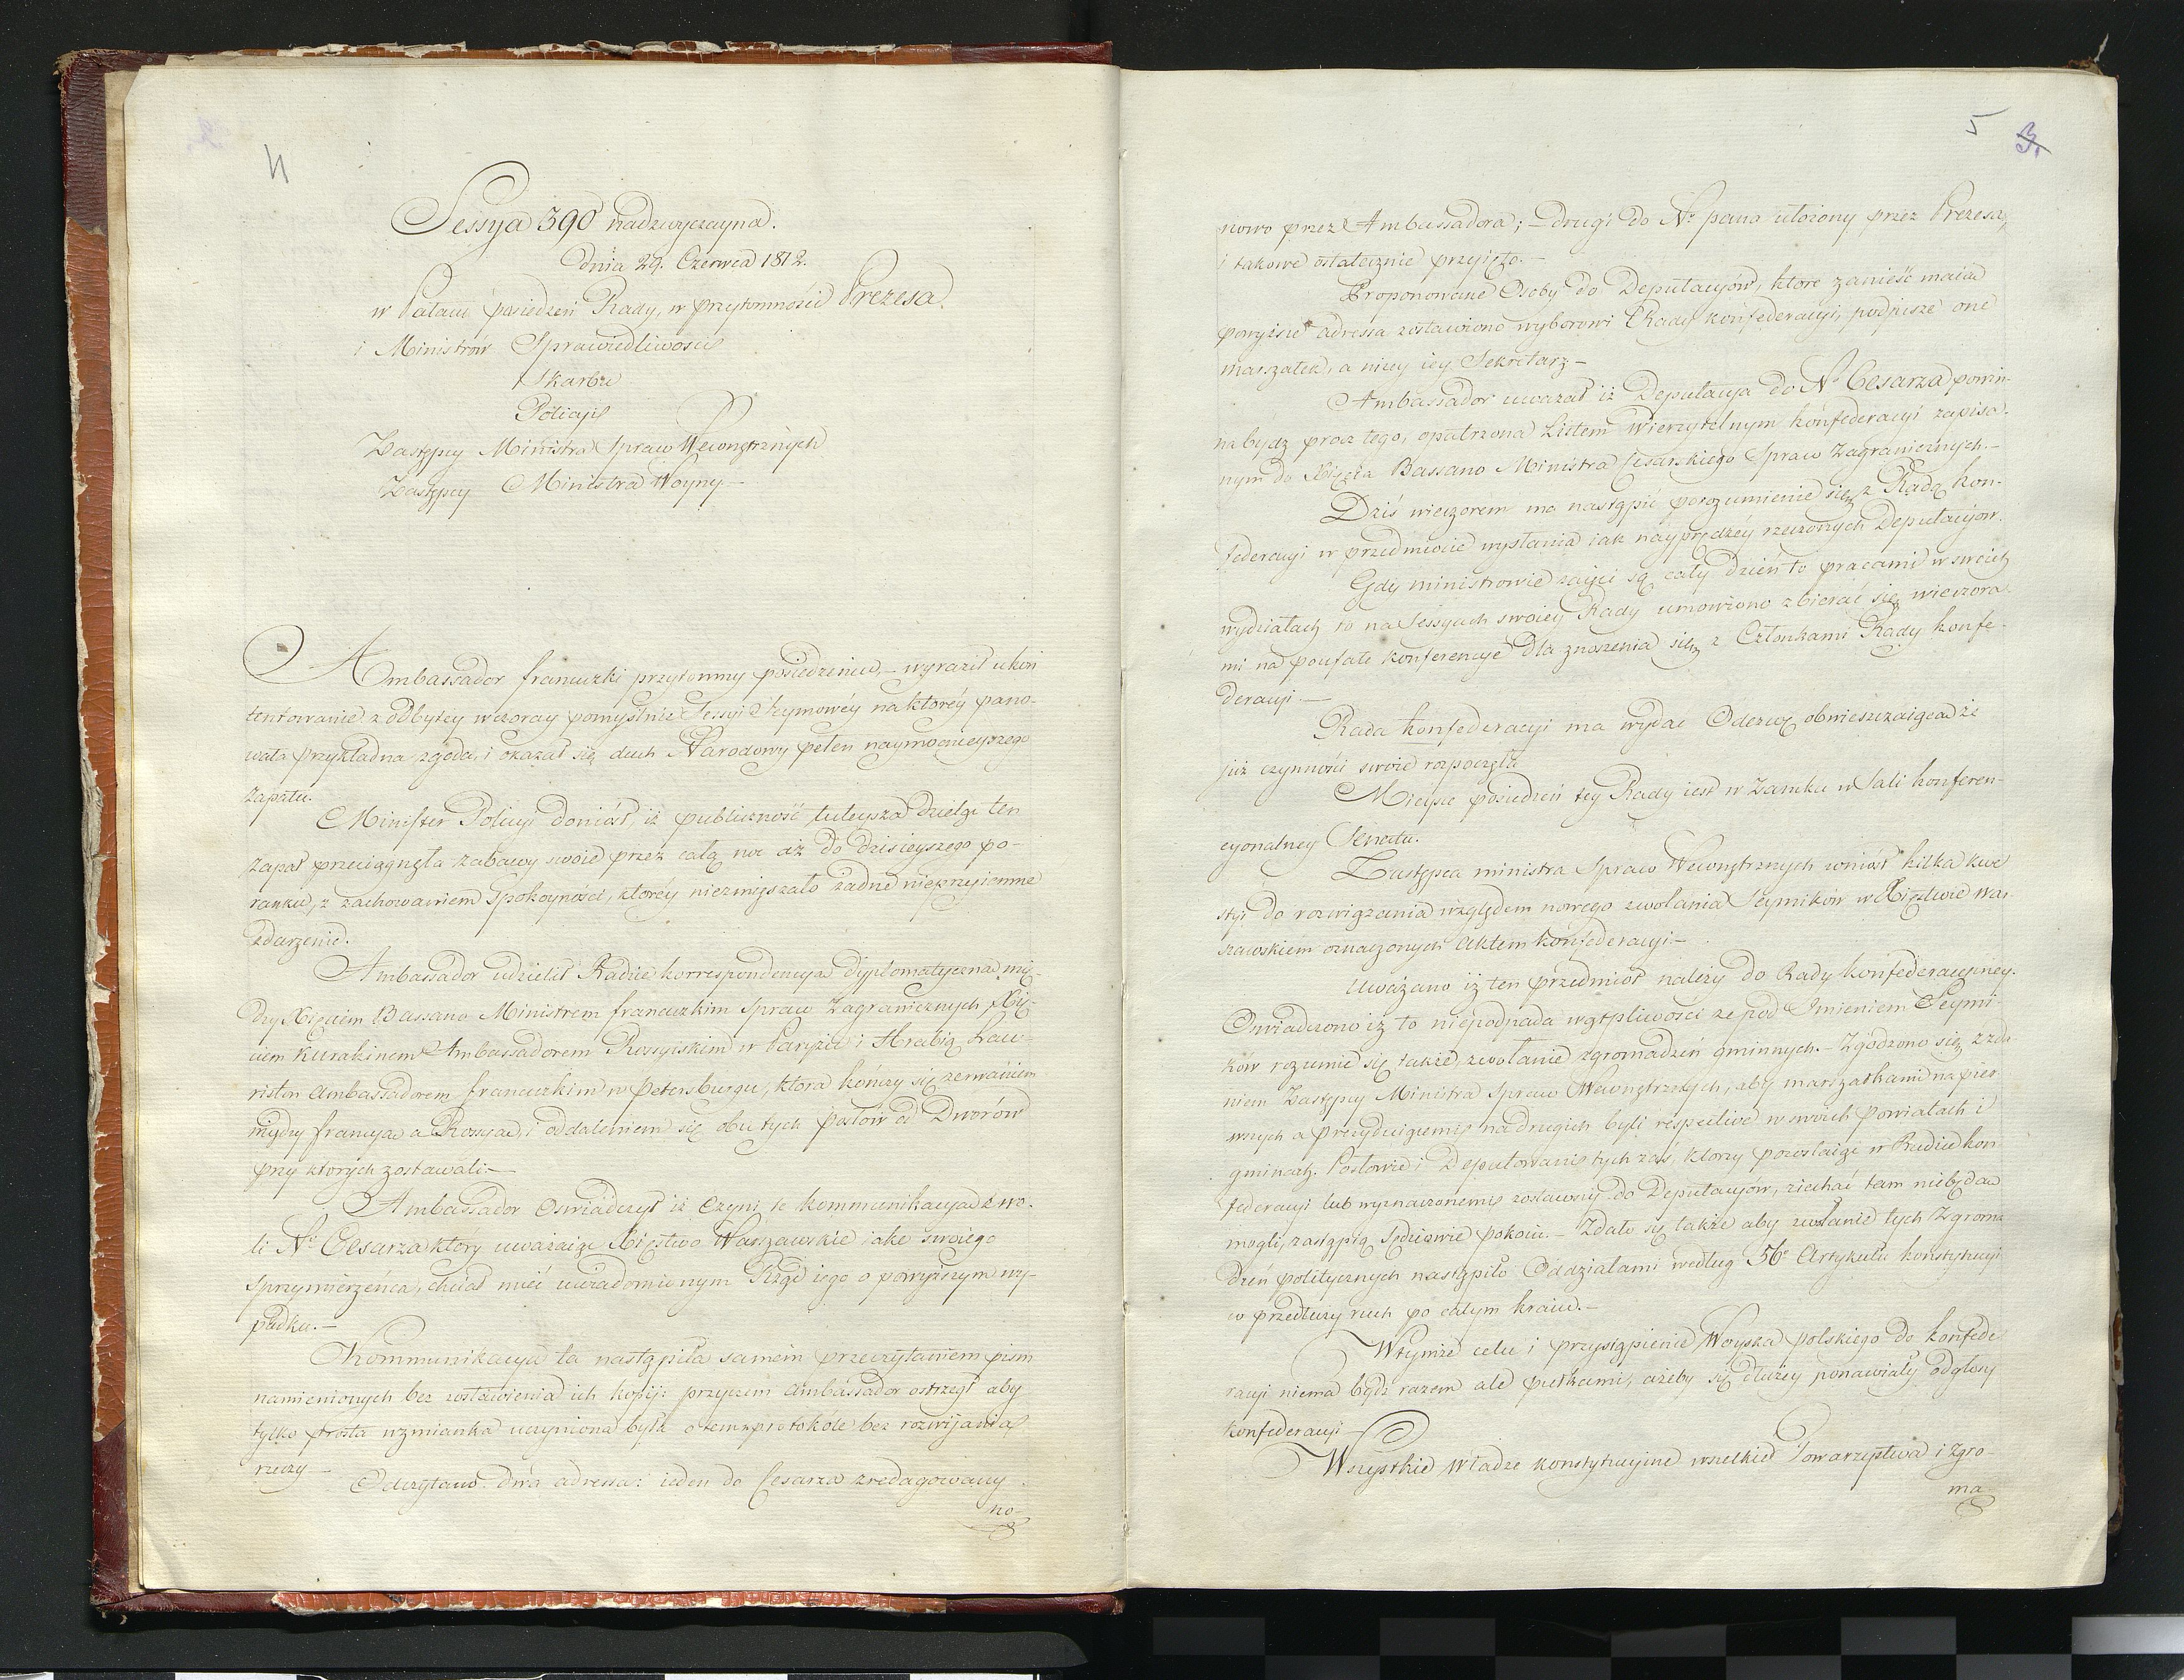 4
Sessya 390 nadzwyczayna.
dnia 29. Czerwca 1812.
w Pałacu posiedzeń Rady, w przytomności Prezesa
i Ministrów Sprawiedliwości
Skarbu
Policyi
Zastępcy Ministra Spraw Wewnętrznych
Zastępcy Ministra Woyny.—
Ambassador francuzki przytomny posiedzeniu,— wyraził ukon
tentowanie z odbytey wczoray pomyślnie Sessyi Seymowéy na któréy pano-
wała przykładna zgoda, i okazał się duch Narodowy pełen naymocnieyszego
zapału.
Minister Policyi doniósł, iż publiczność tuteysza dzieląc ten
zapał przeciągnęła zabawy swoie przez całą noc aż do dzisieyszego po-
ranku, z zachowaniem spokoyności, któréy niezmięszało żadne nieprzyiemne
zdarzenie.
Ambassador udzielił Radzie korrespondencya dyplomatyczna mię-
dzy Xięciem Bassano Ministrem francuzkim Spraw Zagranicznych, Xię-
ciem Kurakinem Ambassadorem Rossyiskim w Paryżu i Hrabią Lau-
riston Ambassadorem francuzkim w Petersburgu, która kończy się zerwaniem
między francya a Rossya i oddaleniem się obu tych posłów od Dworów
przy których zostawali.—
Ambassador Oświadczył iż Czyni te kommunikacya z wo-
li Nº Cesarza który uważaiąc Xięstwo Warszawskie iako swoiego
sprzymierzeńca, chciał mieć uwiadomionym Rząd iego o powyższym wy-
padku.—
Kommunikacya ta nastąpiła samém przeczytaniem pism
namienionych bez zostawienia ich kopij: przyczém Ambassador ostrzegł aby
tylko prosta wzmianka uczyniona była o tem w protokóle bez rozwijania
rzeczy—
Odczytano dwa adressa: ieden do Cesarza zredagowany
no-
5 3.
nowo przez Ambassadora;— drugi do Nº pana ułożony przez Prezesa,
i takowe ostatecznie przyięto.—
Proponowane Osoby do Deputacyów, które zanieść maia
powyższe adressa zostawiono wyborowi Rady konfederacyi, podpisze one
marszałek, a niżey iey Sekretarz—
Ambassador uważał iż Deputacya do Nº Cesarza powin-
na bydz procz tego, opatrzona Listem Wierzytelnym konfederacyi zapisa-
nym do Xięcia Bassano Ministra Cesarskiego Spraw Zagranicznych.—
Dziś wieczorem ma nastąpić porozumienie się z Radą kon-
federacyi w przedmiocie wysłania iak nayprędzey rzeczonych Deputacyów.
Gdy ministrowie zaięci są cały dzień to pracami w swoich
wydziałach to na Sessyach swoiey Rady umówiono zbierać się wieczora-
mi na poufałe konferencye dla znoszenia się z Członkami Rady konfe-
deracyi.—
Rada konfederacyi ma wydac Odezwę obwieszczaiąca że
już czynności swoie rozpoczęła
Mieysce posiedzeń tey Rady iest w Zamku w Sali konferen-
cyonalney Senatu.
Zastępca ministra Spraw Wewnętrznych wniósł kilka kwe
styi do rozwiązania względem nowego zwołania Seymików w Xięstwie War-
szawskiem oznaczonych Aktem konfederacyi—
Uważano iż ten przedmiot należy do Rady konfederacyiney.
Oswiadczono iż to niepodpada wątpliwosci że pod Imieniem Seymi-
ków rozumie się także, zwołanie zgromadzeń gminnych.— Zgodzono się z zda-
niem Zastępcy Ministra Spraw Wewnętrznych, aby marszałkami na pier-
wszych a prezyduiącemi na drugich byli respective w swoich powiatach i
gminach. Posłowie i Deputowani tych zaś, ktorzy pozostaiąc w Radzie kon-
federacyi lub wyznaczonemi zostawszy do Deputacyów, ziechać tam niebęda
mogli, zastąpią Sędziowie pokoiu.— Zdało się także aby zwołanie tych Zgroma-
dzeń politycznych nastąpiło Oddziałami według 56º Artykułu konstytucyi
w przedłuży ruch po całym kraiu.—
W tymże celu i przystąpienie Woyska polskiego do konfede
racyi niema bydz razem ale pułkami, ażeby się dłużey ponawiały odgłosy
konfederacyi—
Wszystkie Władze konstytucyine wszelkie Towarzystwa i zgro-
ma-